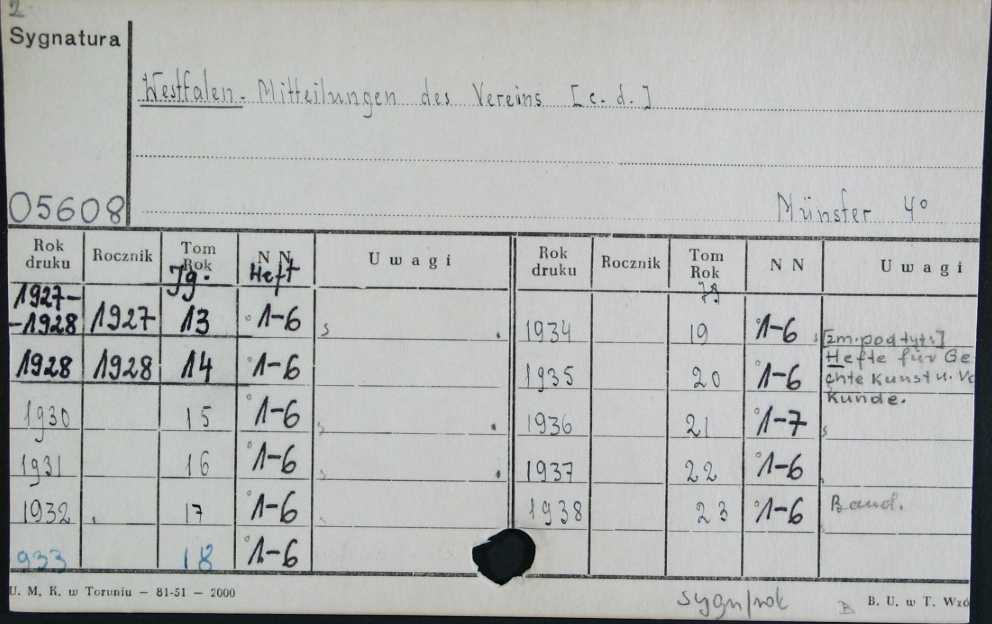 2
Sygnatura
Westfalen. Mitteilungen des Vereins [c. d.]
05608
Münster 4°
Rok druku Rocznik Tom Rok Jg. N N Heft Uwagi Rok druku Rocznik Tom Rok Jg N N Uwagi
1927-
-1928 1927 13 1-6 1934 19 1-6 [zm. podtyt.]
Hefte für Ge
1928 1928 14 1-6 1935 20 1-6 chte Kunst u. Vo
Kunde.
1930 15 1-6 1936 21 1-7
1931 16 1-6 1937 22 1-6
1932 17 1-6 1938 23 1-6 Band.
933 18 1-6
U. M. K. w Toruniu — 81-51 — 2000
sygn/rok
B B. U. w T. Wzó